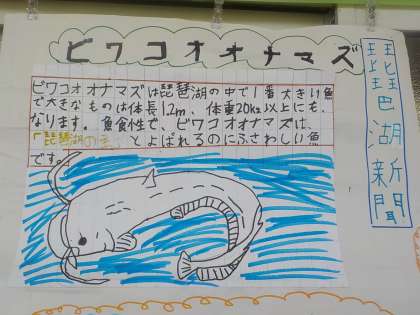 ビワコオオナマズ
琵琶湖新聞
ビワコオオナマズは琵琶湖の中で1番大きい魚
で大きなものは体長1.2m、体重20kg以上にも、
なります。魚食性で、ビワコオオナマズは、
「琵琶湖の とよばれるのにふさわしい魚
です。